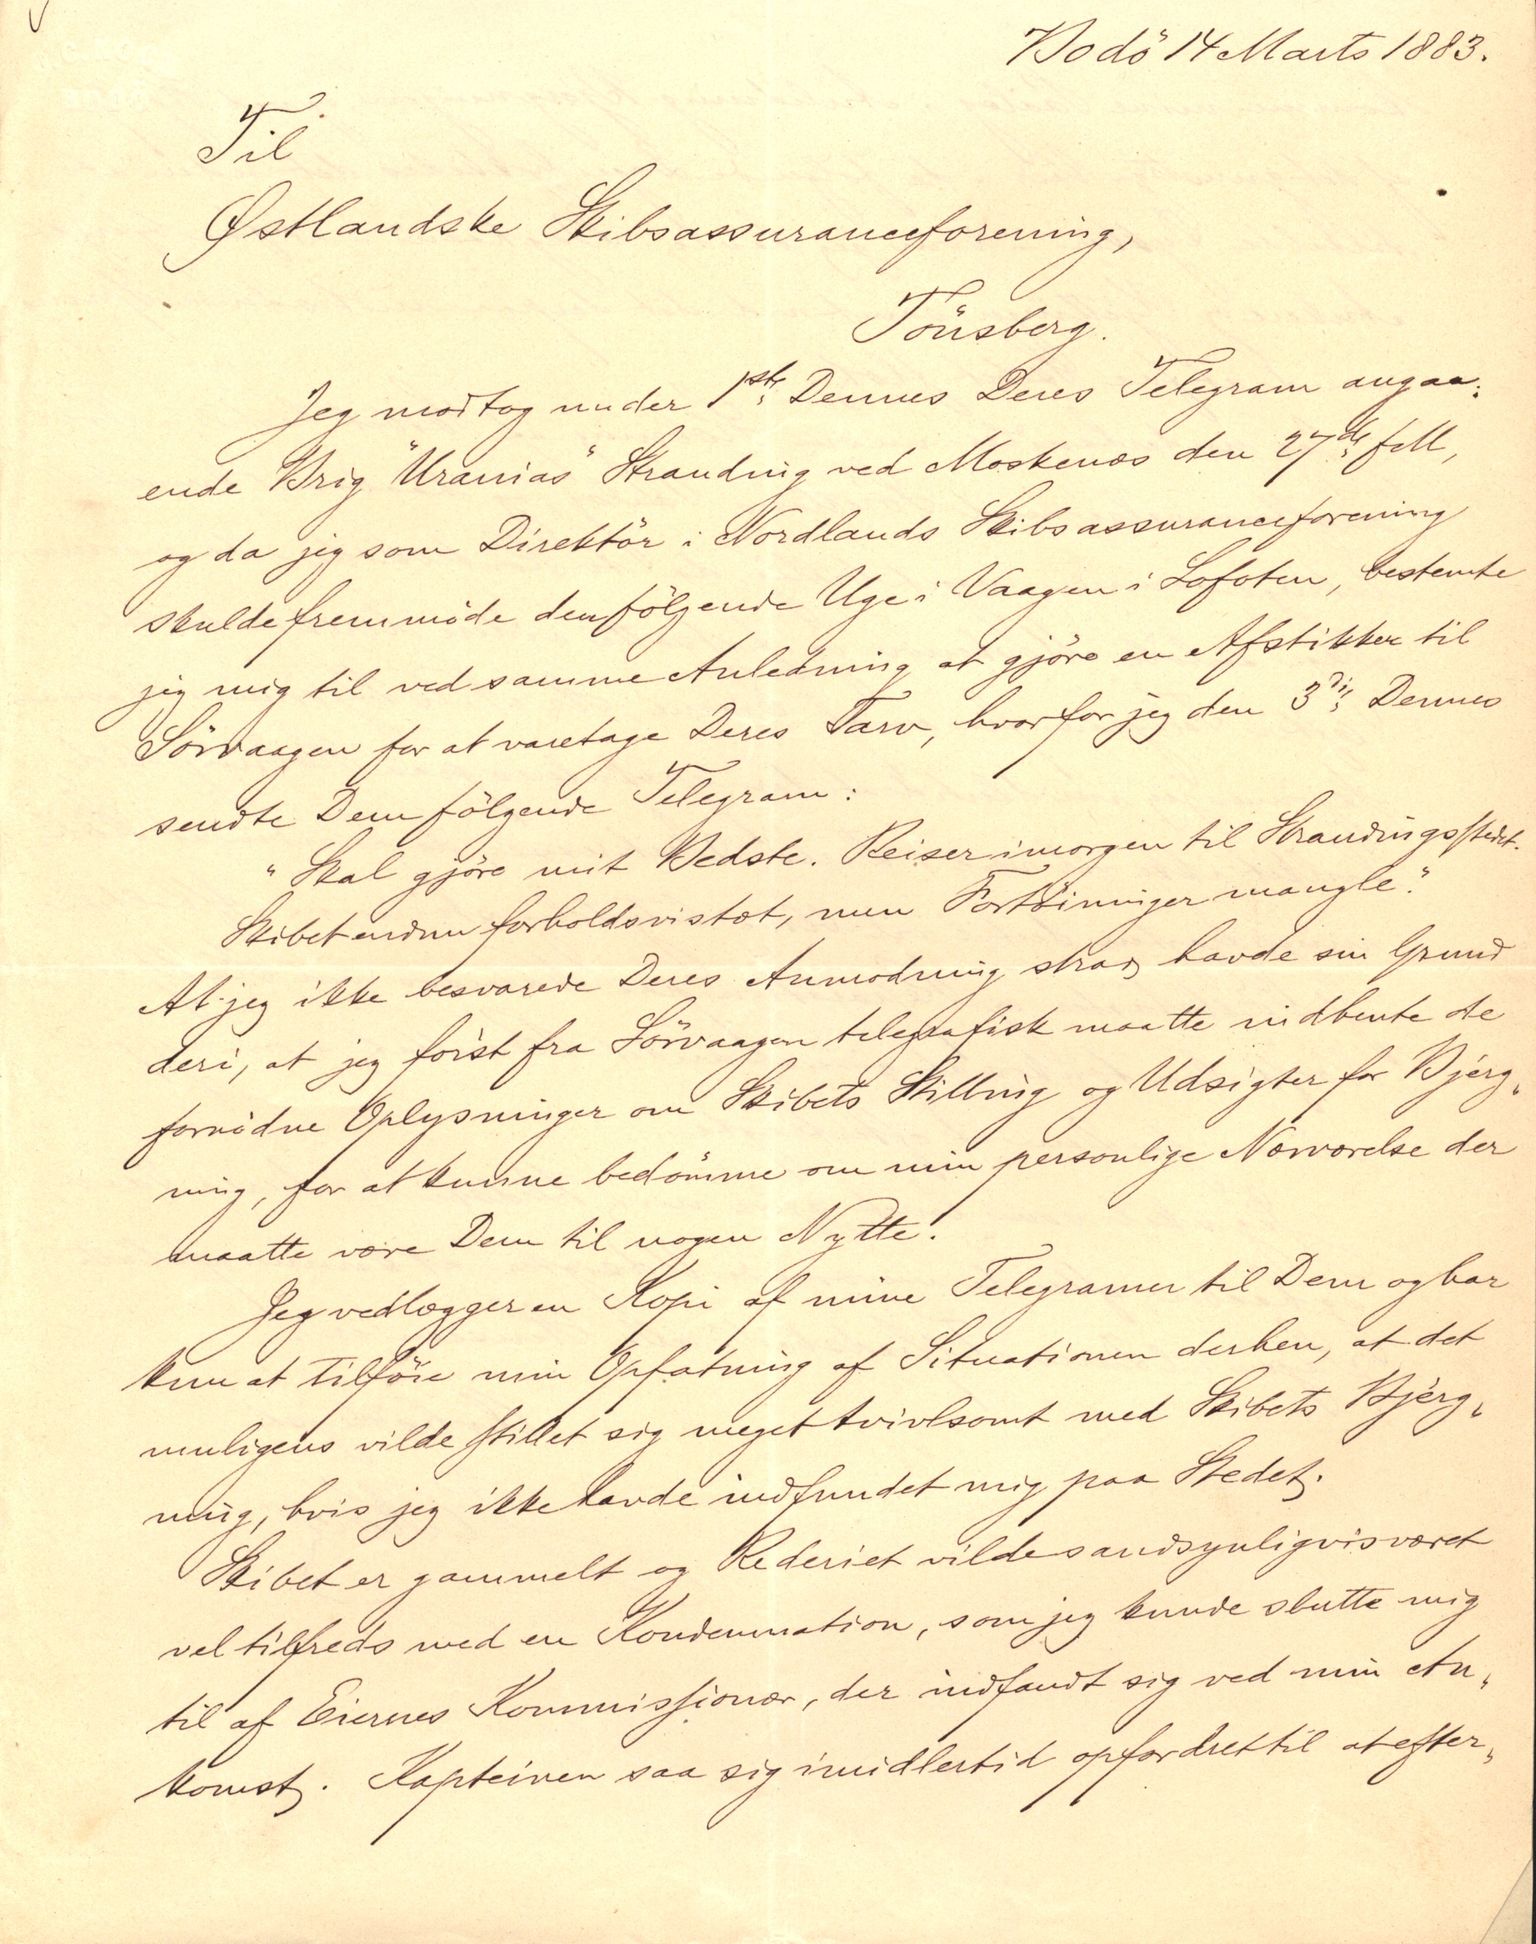 Bodö 14 Marts 1883.
Til
Østlandske Skibsassuranceforening,
Tönsberg.
Jeg modtog under 1ste Dennes Deres Telegram angaa-
ende Brig "Uranias" Stranding ved Moskenæs den 27de f.M.,
og da jeg som Direktör i Nordlands Skibsassuranceforening
skulde fremmöde den fölgende Uge i Vaagen i Lofoten, bestemte
jeg mig til ved samme Anledning at gjöre en Afstikker til
Sörvaagen for at varetage Deres Tarv, hvorfor jeg den 3die Dennes
sendte Dem fölgende Telegram:
"Skal gjöre mit Bedste. Reiser imorgen til Strandingsstedet.
Skibet endnu forholdsvis tæt, men Fortöininger mangle."
At jeg ikke besvarede Deres Anmodning strax havde sin Grund
deri, at jeg först fra Sörvaagen telegrafisk maatte indhente de
fornödne Oplysninger om Skibets Stilling og Udsigter for Bjerg-
ning, for at kunne bedömme om min personlige Nærværelse der
maatte være Dem til nogen Nytte.
Jeg vedlægger en Kopi af mine Telegramer til Dem og har
kun at tilföie min Opfatning af Situationen derhen, at det
muligens vilde stillet sig meget tvivlsomt med Skibets Bjerg-
ning, hvis jeg ikke havde indfundet mig paa Stedet.
Skibet er gammelt og Rederiet vilde sandsynligvis været
vel tilfreds med en Kondemnation, som jeg kunde slutte mig
til af Eiernes Kommissjonær, der indfandt sig ved min An-
komst. Kapteinen saa sig imidlertid opfordret til at efter-